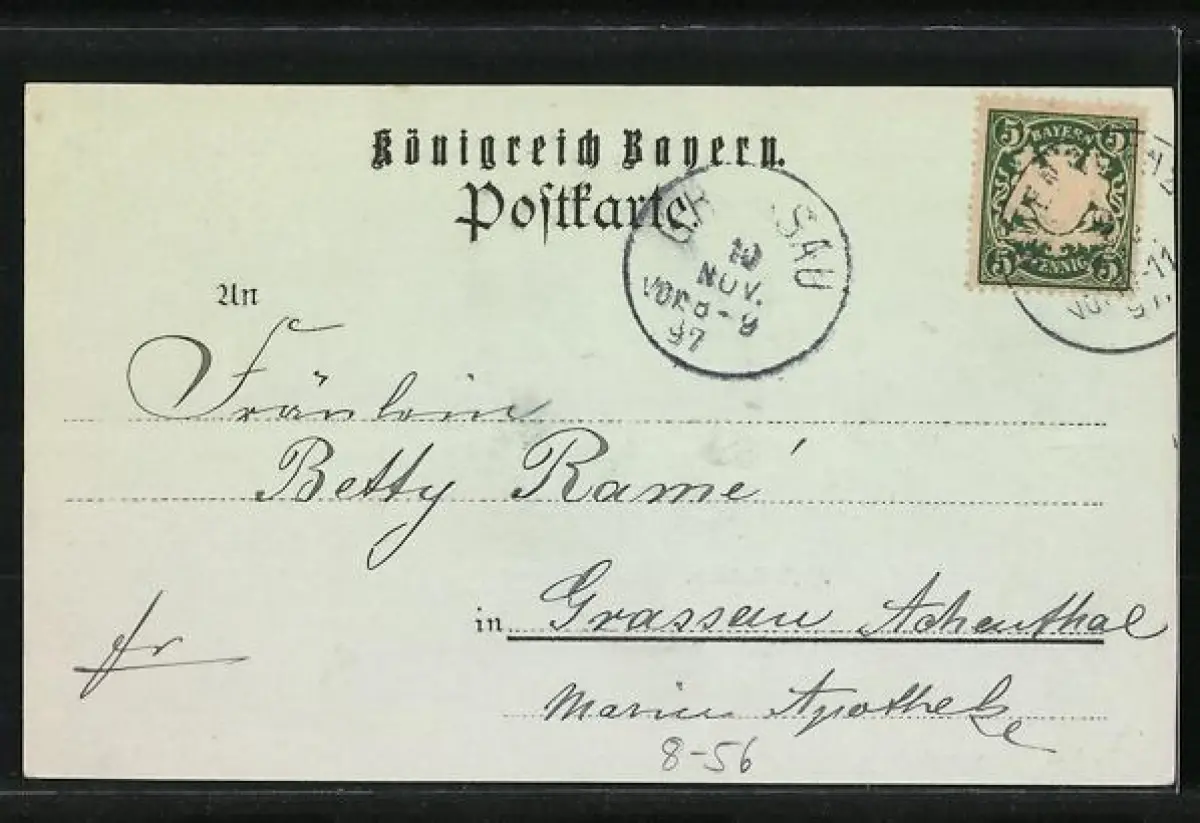 Königreich Bayern.
Postkarte.
5 BAYERN 5
5 PFENNIG 5
SAU
10
NOV.
VOR 8-9
97
-11
97.
An
Fräulein
Betty Ramé
in Grassau Achenthal
Marien Apotheke
fr
8-56